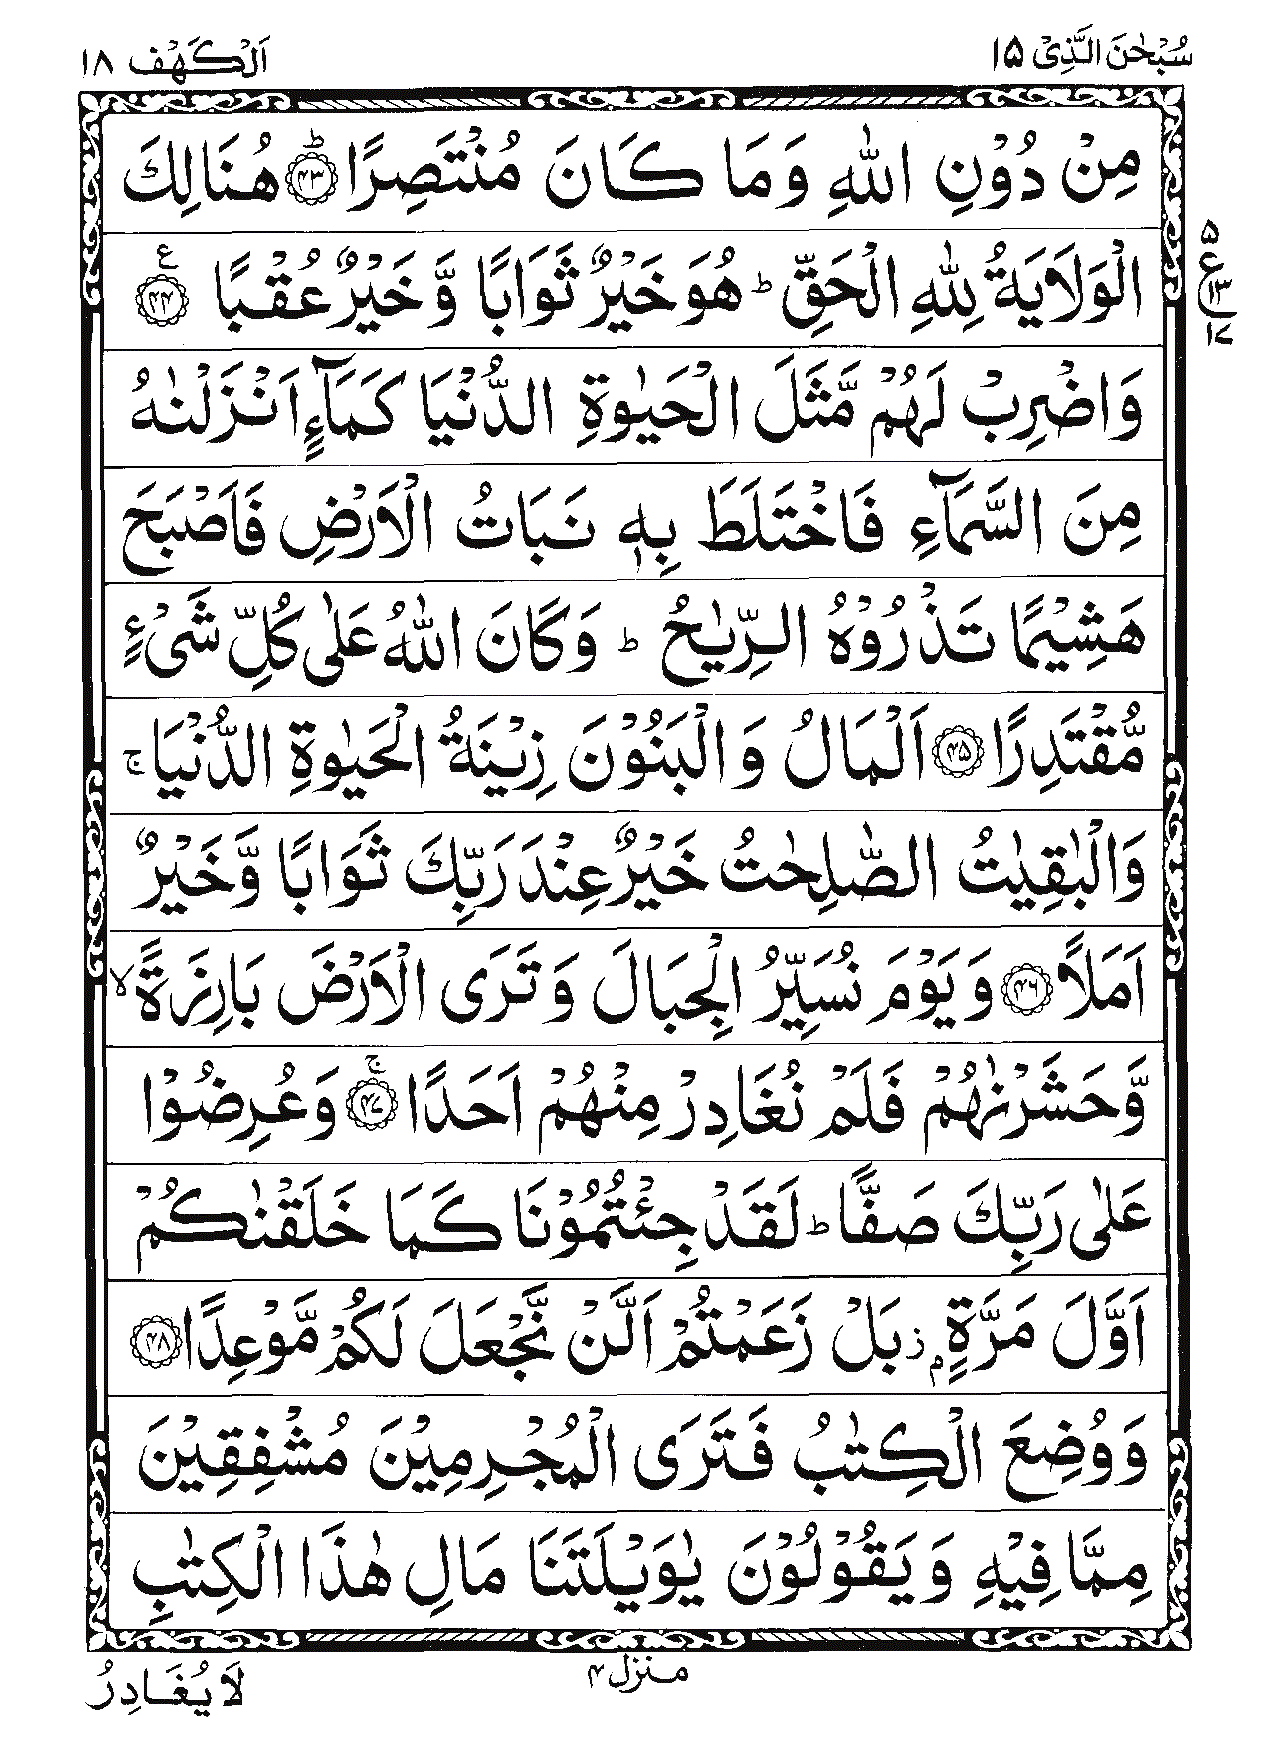 سُبْحٰنَ الَّذِیْ ۱۵
اَلْکَهْف ۱۸
مِنْ دُوْنِ اللّٰهِ وَمَا کَانَ مُنْتَصِرًا ؕ ﴿۴۳﴾ هُنَالِكَ
الْوَلَايَةُ لِلّٰهِ الْحَقِّ ؕ هُوَ خَيْرٌ ثَوَابًا وَّ خَيْرٌ عُقْبًا ﴿۴۴﴾ ع
۵
ع
۱۳
۱۷
وَاضْرِبْ لَهُمْ مَّثَلَ الْحَيٰوةِ الدُّنْيَا كَمَآءٍ اَنْزَلْنٰهُ
مِنَ السَّمَآءِ فَاخْتَلَطَ بِهٖ نَبَاتُ الْاَرْضِ فَاَصْبَحَ
هَشِيْمًا تَذْرُوْهُ الرِّيٰحُ ؕ وَكَانَ اللّٰهُ عَلٰی كُلِّ شَیْءٍ
مُّقْتَدِرًا ﴿۴۵﴾ اَلْمَالُ وَ الْبَنُوْنَ زِيْنَةُ الْحَيٰوةِ الدُّنْيَا ۚ
وَالْبٰقِيٰتُ الصّٰلِحٰتُ خَيْرٌ عِنْدَ رَبِّكَ ثَوَابًا وَّ خَيْرٌ
اَمَلًا ﴿۴۶﴾ وَ يَوْمَ نُسَيِّرُ الْجِبَالَ وَ تَرَی الْاَرْضَ بَارِزَةً ۙ
وَّحَشَرْنٰهُمْ فَلَمْ نُغَادِرْ مِنْهُمْ اَحَدًا ۚ ﴿۴۷﴾ وَعُرِضُوْا
عَلٰی رَبِّكَ صَفًّا ؕ لَقَدْ جِئْتُمُوْنَا كَمَا خَلَقْنٰكُمْ
اَوَّلَ مَرَّةٍۭ ز بَلْ زَعَمْتُمْ اَلَّنْ نَّجْعَلَ لَكُمْ مَّوْعِدًا ﴿۴۸﴾
وَوُضِعَ الْكِتٰبُ فَتَرَی الْمُجْرِمِيْنَ مُشْفِقِيْنَ
مِمَّا فِيْهِ وَ يَقُوْلُوْنَ يٰوَيْلَتَنَا مَالِ هٰذَا الْكِتٰبِ
منزل ۴
لَا يُغَادِرُ